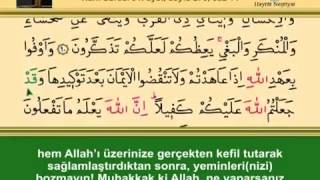 وَالْاِحْسَانِ وَا۪يتَٓائِ ذِي الْقُرْبٰى وَيَنْهٰى عَنِ
وَالْمُنْكَرِ وَالْبَغْيِ يَعِظُكُمْ لَعَلَّكُمْ تَذَكَّرُونَ ﴿٩٠﴾ وَاَوْفُوا
بِعَهْدِ اللّٰهِ اِذَا عَاهَدْتُمْ وَلَا تَنْقُضُوا الْاَيْمَانَ بَعْدَ تَوْك۪يدِهَا وَقَدْ
جَعَلْتُمُ اللّٰهَ عَلَيْكُمْ كَف۪يلًا اِنَّ اللّٰهَ يَعْلَمُ مَا تَفْعَلُونَ
hem Allah'ı üzerinize gerçekten kefil tutarak
sağlamlaştırdıktan sonra, yeminleri(nizi)
bozmayın! Muhakkak ki Allah, ne yaparsanız